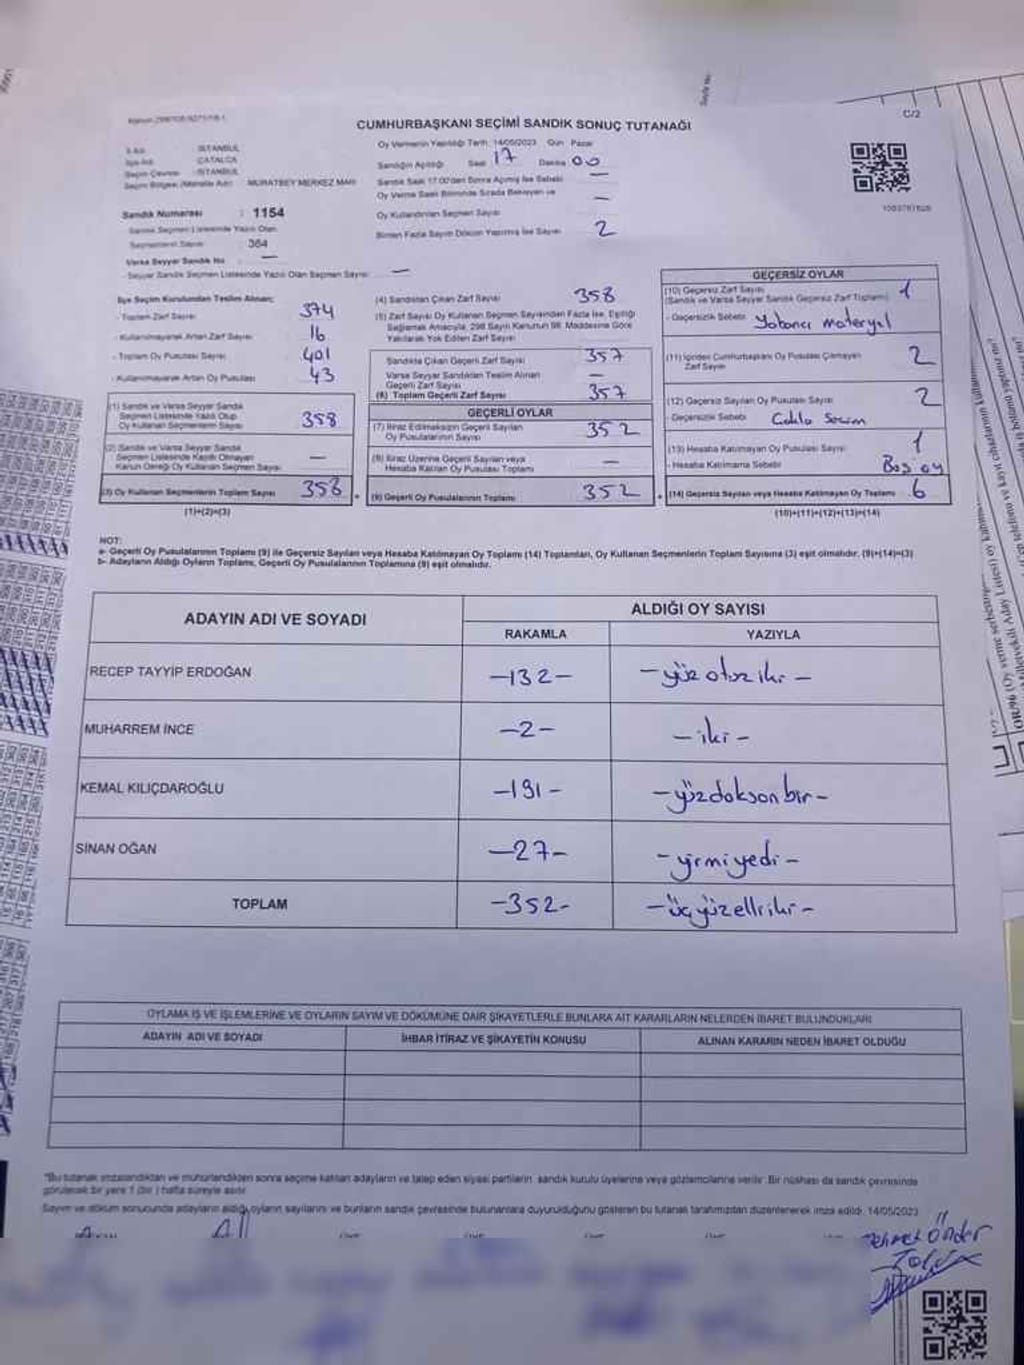 C/2
CUMHURBAŞKANI SEÇİMİ SANDIK SONUÇ TUTANAĞI
İli Adı : İSTANBUL
İlçe Adı : ÇATALCA
Seçim Çevresi : İSTANBUL
Seçim Bölgesi (Mahalle Adı) : MURATBEY MERKEZ MAH
Sandık Numarası : 1154
Sandık Seçmen Listesinde Yazılı Olan
Seçmenlerin Sayısı : 364
Varsa Seyyar Sandık No : —
Seyyar Sandık Seçmen Listesinde Yazılı Olan Seçmen Sayısı : —
Oy Vermenin Yapıldığı Tarih: 14/05/2023 Gün Pazar
Sandığın Açıldığı Saat 17 Dakika 00
Sandık Saat 17.00'den Sonra Açılmış İse Sebebi —
Oy Verme Saati Bitiminde Sırada Bekleyen ve
Oy Kullandırılan Seçmen Sayısı —
Birden Fazla Sayım Döküm Yapılmış İse Sayısı 2
İlçe Seçim Kurulundan Teslim Alınan;
- Toplam Zarf Sayısı 374
- Kullanılmayarak Artan Zarf Sayısı 16
- Toplam Oy Pusulası Sayısı 401
- Kullanılmayarak Artan Oy Pusulası 43
(1) Sandık ve Varsa Seyyar Sandık
Seçmen Listesinde Yazılı Olup
Oy Kullanan Seçmenlerin Sayısı 358
(2) Sandık ve Varsa Seyyar Sandık
Seçmen Listesinde Kaydı Olmayan
Kanun Gereği Oy Kullanan Seçmen Sayısı —
(3) Oy Kullanan Seçmenlerin Toplam Sayısı 358
(1)+(2)=(3)
(4) Sandıktan Çıkan Zarf Sayısı 358
(5) Zarf Sayısı Oy Kullanan Seçmen Sayısından Fazla İse, Eşitliği
Sağlamak Amacıyla, 298 Sayılı Kanunun 98. Maddesine Göre
Yakılarak Yok Edilen Zarf Sayısı
Sandıkta Çıkan Geçerli Zarf Sayısı 357
Varsa Seyyar Sandıktan Teslim Alınan
Geçerli Zarf Sayısı —
(6) Toplam Geçerli Zarf Sayısı 357
GEÇERLİ OYLAR
(7) İtiraz Edilmeksizin Geçerli Sayılan
Oy Pusulalarının Sayısı 352
(8) İtiraz Üzerine Geçerli Sayılan veya
Hesaba Katılan Oy Pusulası Toplamı —
(9) Geçerli Oy Pusulalarının Toplamı 352
GEÇERSİZ OYLAR
(10) Geçersiz Zarf Sayısı 1
(Sandık ve Varsa Seyyar Sandık Geçersiz Zarf Toplamı)
- Geçersizlik Sebebi Yabancı materyal
(11) İçinden Cumhurbaşkanı Oy Pusulası Çıkmayan
Zarf Sayısı 2
(12) Geçersiz Sayılan Oy Pusulası Sayısı 2
Geçersizlik Sebebi
(13) Hesaba Katılmayan Oy Pusulası Sayısı 1
- Hesaba Katılmama Sebebi Boş oy
(14) Geçersiz Sayılan veya Hesaba Katılmayan Oy Toplamı 6
(10)+(11)+(12)+(13)=(14)
NOT:
a- Geçerli Oy Pusulalarının Toplamı (9) ile Geçersiz Sayılan veya Hesaba Katılmayan Oy Toplamı (14) Toplamları, Oy Kullanan Seçmenlerin Toplam Sayısına (3) eşit olmalıdır. (9)+(14)=(3)
b- Adayların Aldığı Oyların Toplamı, Geçerli Oy Pusulalarının Toplamına (9) eşit olmalıdır.
ADAYIN ADI VE SOYADI ALDIĞI OY SAYISI
RAKAMLA YAZIYLA
RECEP TAYYİP ERDOĞAN -132- -yüz otuz iki-
MUHARREM İNCE -2- -iki-
KEMAL KILIÇDAROĞLU -191- -yüzdoksan bir-
SİNAN OĞAN -27- -yirmiyedi-
TOPLAM -352- -üçyüzelliiki-
OYLAMA İŞ VE İŞLEMLERİNE VE OYLARIN SAYIM VE DÖKÜMÜNE DAİR ŞİKAYETLERLE BUNLARA AİT KARARLARIN NELERDEN İBARET BULUNDUKLARI
ADAYIN ADI VE SOYADI İHBAR İTİRAZ VE ŞİKAYETİN KONUSU ALINAN KARARIN NEDEN İBARET OLDUĞU
"Bu tutanak imzalandıktan ve mühürlendikten sonra seçime katılan adayların ve talep eden siyasi partilerin sandık kurulu üyelerine veya gözlemcilerine verilir. Bir nüshası da sandık çevresinde
görülecek bir yere 1 (bir) hafta süreyle asılır.
Sayım ve döküm sonucunda adayların aldığı oyların sayılarını ve bunların sandık çevresinde bulunanlara duyurulduğunu gösteren bu tutanak tarafımızdan düzenlenerek imza edildi. 14/05/2023
Mehmet Önder